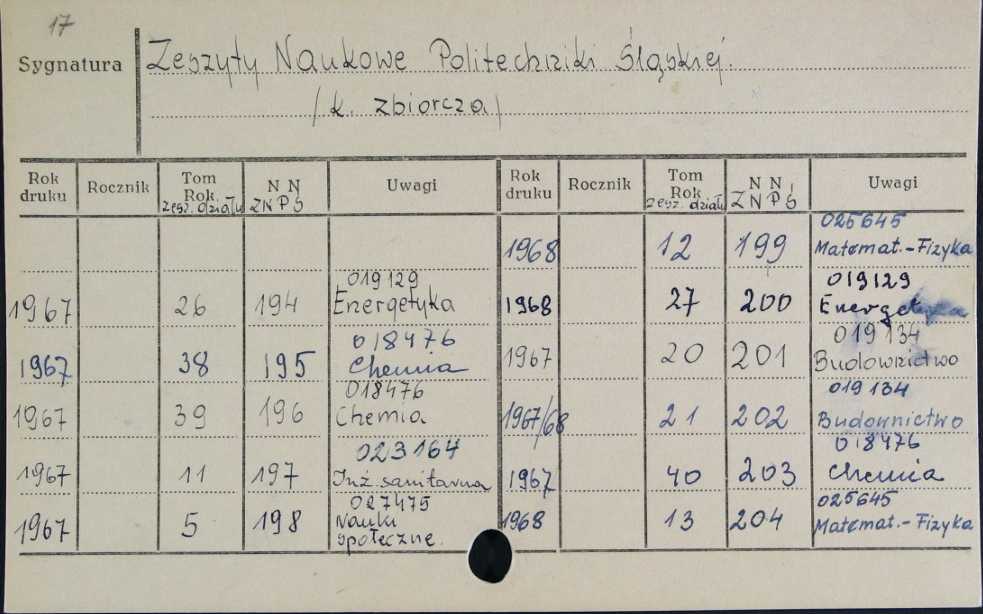 17
Sygnatura Zeszyty Naukowe Politechniki Śląskiej.
(k. zbiorcza)
Rok druku Rocznik Tom Rok zesz. działu N N ZNPŚ Uwagi Rok druku Rocznik Tom Rok zesz. działu N N ZNPŚ Uwagi
1968 12 199 025645 Matemat.-Fizyka
1967 26 194 019129 Energetyka 1968 27 200 019129 Energetyka
1967 38 195 018476 Chemia 1967 20 201 019134 Budownictwo
1967 39 196 018476 Chemia 1967/68 21 202 019134 Budownictwo
1967 11 197 023164 Inż sanitarna 1967 40 203 018476 Chemia
1967 5 198 027475 Nauki społeczne. 1968 13 204 025645 Matemat.-Fizyka